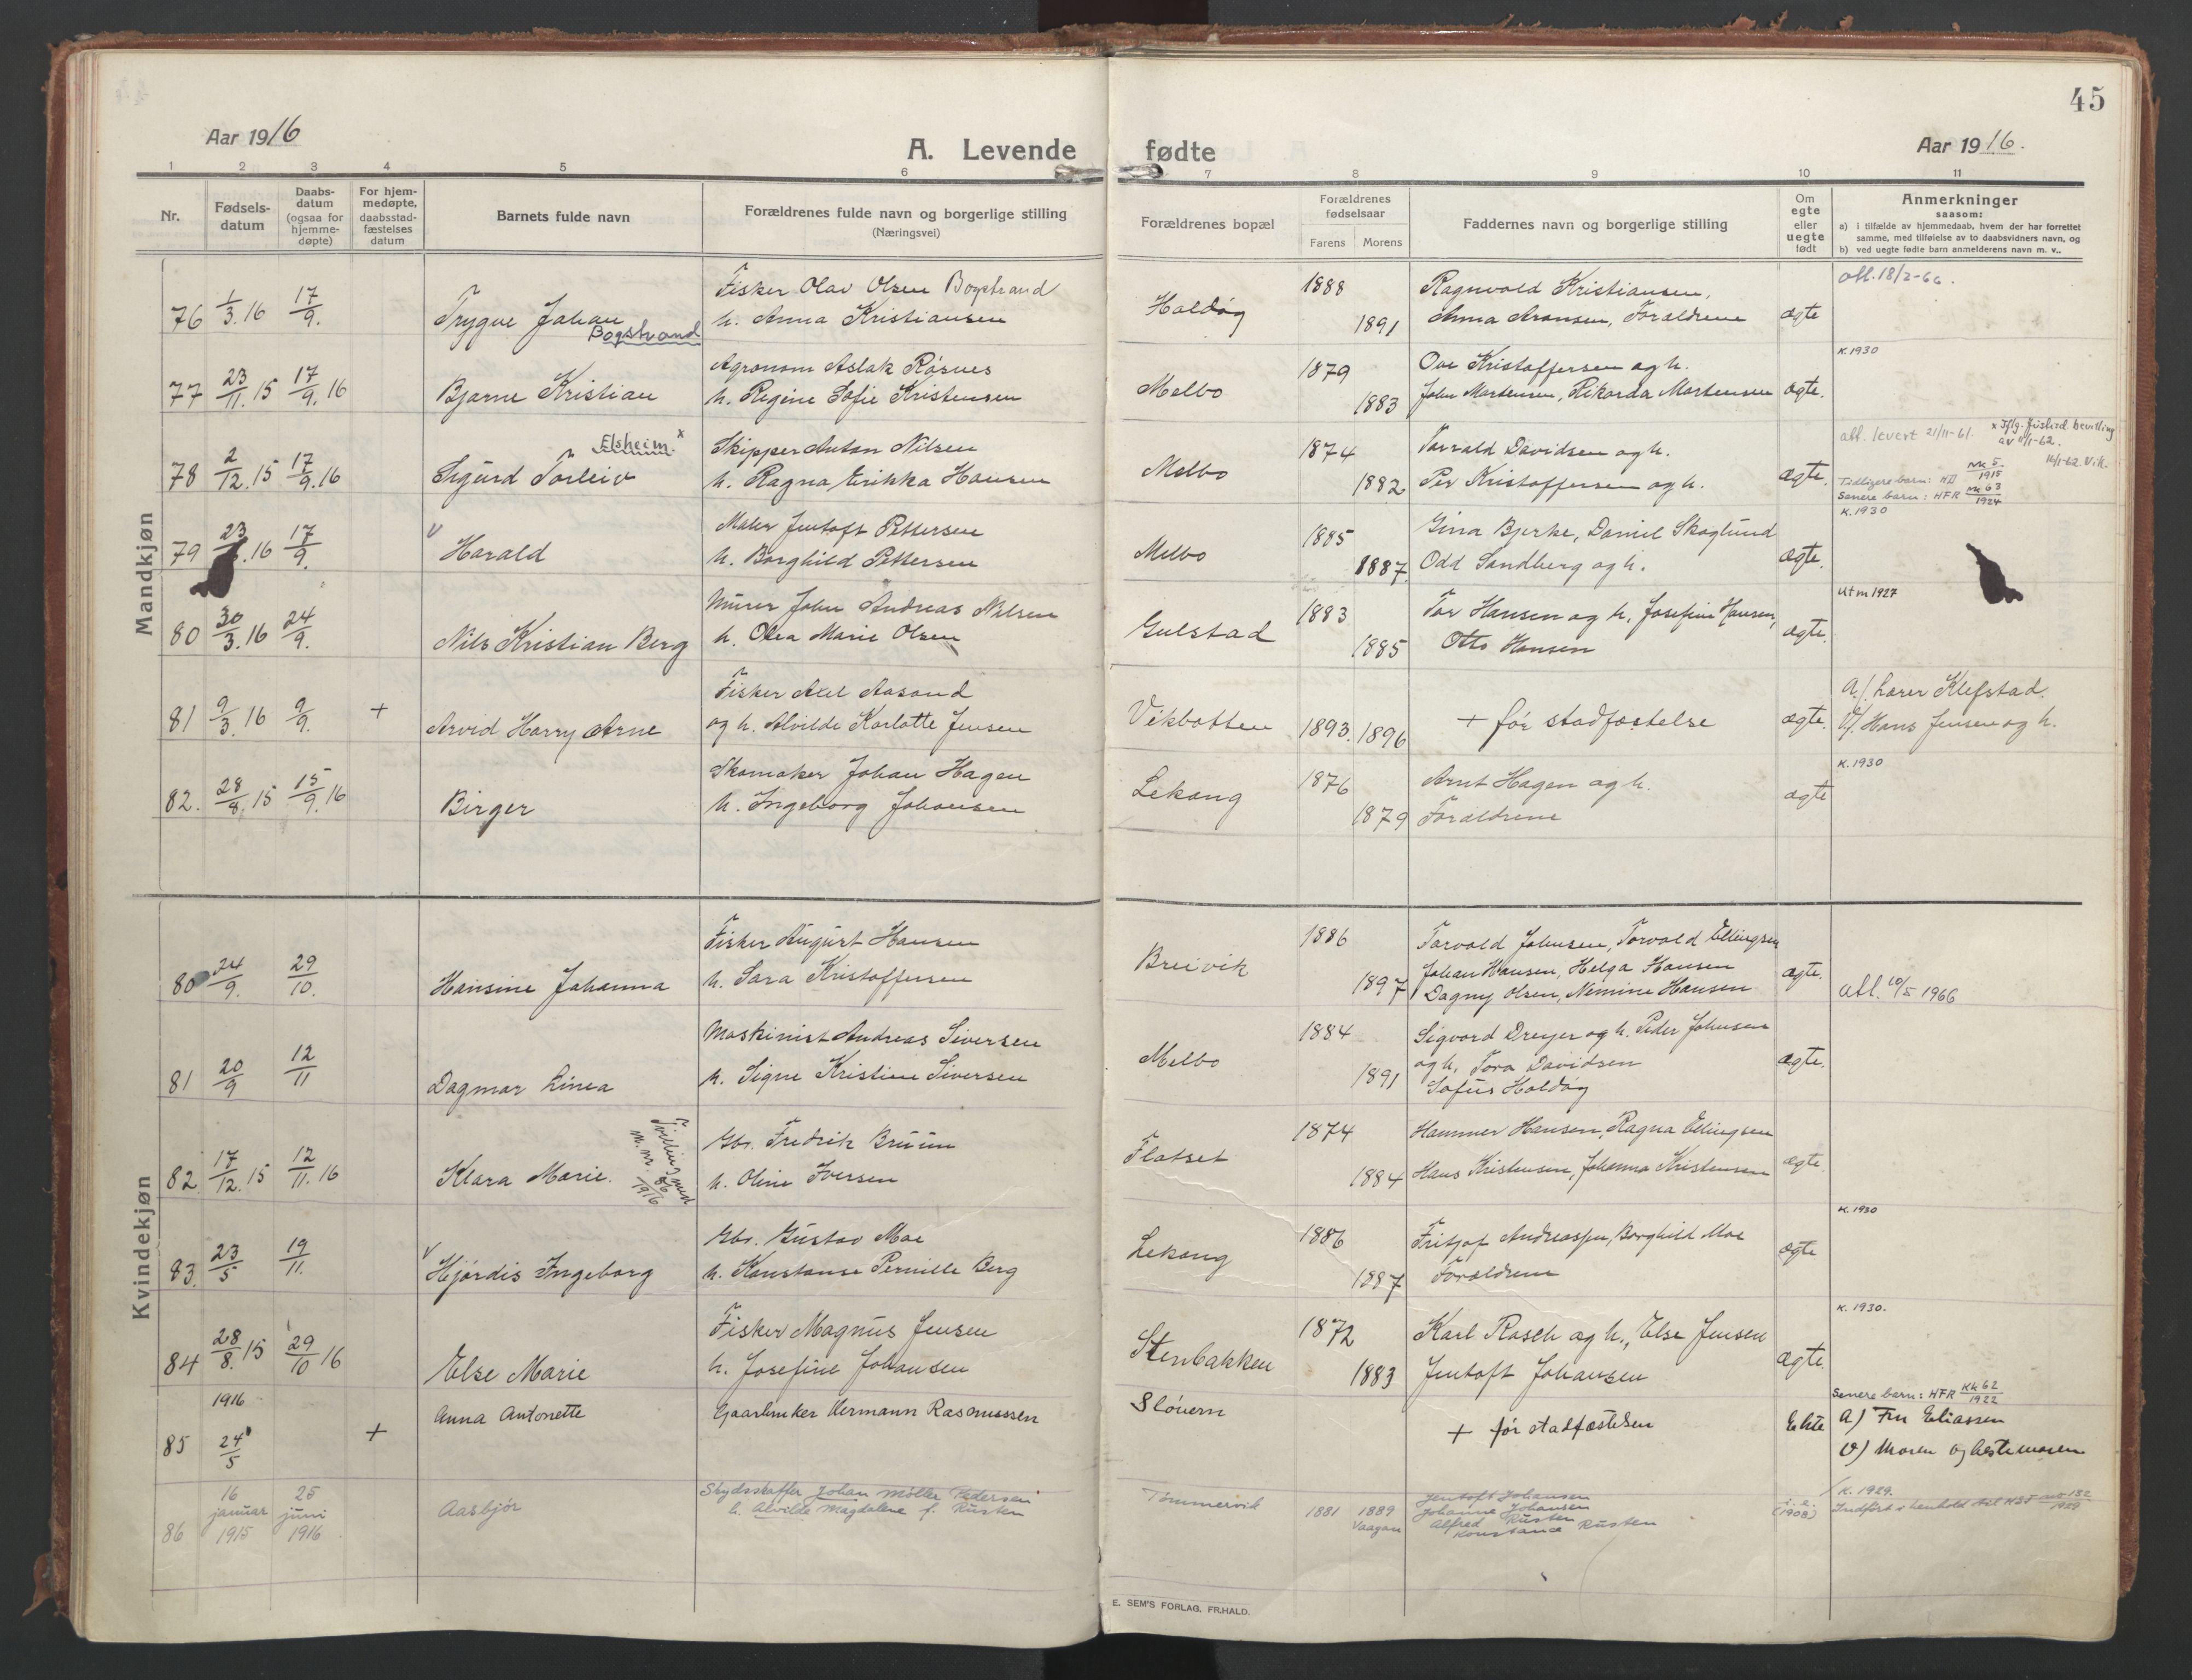 45
Aar 1916
A. Levende fødte
Aar 1916.
1 2 3 4 5 6 7 8 9 10 11
Nr.
Fødsels-
datum
Daabs-
datum
(ogsaa for
hjemme-
døpte)
For hjem-
medøpte,
daabsstad-
fæstelses
datum
Barnets fulde navn
Forældrenes fulde navn og borgerlige stilling
(Næringsvei)
Forældrenes bopæl
Forældrenes
fødselsaar
Farens Morens
Faddernes navn og borgerlige stilling
Om
egte
eller
uegte
født
Anmerkninger
saasom:
a) i tilfælde av hjemmedaab, hvem der har forrettet
samme, med tilføielse av to daabsvidners navn, og
b) ved uegte fødte barn anmelderens navn m. v..
Mandkjøn
76 1/3.16 17/9. Trygve Johan Bogstrand
Fisker Olav Olsen Bogstrand
h. Anna Kristiansen
Holdøy 1888 1891
Ragnvald Kristiansen,
Anna Aronsen, Forældrene
ægte
att. 18/2-66.
77 23/11.15 17/9.16 Bjarne Kristian
Agronom Aslak Røsnes
h. Regine Sofie Kristensen
Melbo 1879 1883
Ove Kristoffersen og h.
John Martensen, Rikarda Martensen
ægte.
K. 1930
78 2/12.15 17/9.16 Sigurd Torleiv Elsheim x
Skipper Anton Nilsen
h. Ragna Erikka Hansen
Melbo 1874 1882
Torvald Davidsen og h.
Per Kristoffersen og h.
ægte.
att. levert 21/11-61.
av 11/1-62.
16/1-62. Vik.
Tidligere barn: MII Mk 5/1915
Senere barn: HFR Mk 63/1924
K. 1930
79 23/ .16 17/9. v Harald
Maler Jentoft Pettersen
h. Borghild Pettersen
Melbo 1885 1887
Gina Bjerke, Daniel Skoglund
Odd Sandberg og h.
ægte.
80 30/3.16 24/9. Nils Kristian Berg
Murer John Andreas Nilsen
h. Olea Marie Olsen
Gulstad 1883 1885
Tor Hansen og h, Josefine Hansen,
Otto Hansen
ægte.
Utm 1927
81 9/3.16 9/9. + Arvid Harry Arne
Fisker Axel Aasand
og h. Alvilde Karlotte Jensen
Vikbotten 1893. 1896
+ før stadfæstelse
ægte.
a/. Lærer Klefstad.
V/. Hans Jensen og h.
82. 28/8.15 15/9.16 Birger
Skomaker Johan Hagen
h. Ingeborg Johansen
Lekang 1876 1879
Arnt Hagen og h.
Forældrene
ægte
K. 1930
Kvindekjøn
80 24/9. 29/10. Hansine Johanna
Fisker August Hansen
h. Sara Kristoffersen
Breivik 1886 1897
Torvald Johnsen, Torvald Ellingsen
Johan Hansen, Helga Hansen
Dagny Olsen, Nemine Hansen
ægte.
att. 10/5 1966
81 20/9 12/11 Dagmar Linea
Maskinist Andreas Siversen
h. Signe Kristine Siversen
Melbo 1884 1891
Sigvard Dreyer og h. Peder Johnsen
og h, Tora Davidsen
Sofus Holdøy
ægte.
82. 17/12.15 12/11.16 Klara Marie. Tvilling med
m. nr. 86/1916
Gbr. Fredrik Bruun
h. Oline Iversen
Flatset 1874 1884
Hammer Hansen, Ragna Ellingsen
Hans Kristensen, Johanna Kristensen
ægte.
83. 23/5 19/11. v Hjørdis Ingeborg
Gbr. Gustav Moe
h. Konstanse Pernille Berg
Lekang 1886 1887
Fritjof Andreassen, Borghild Moe
Forældrene
ægte
K. 1930
84 28/8.15 29/10 16 Else Marie
Fisker Magnus Jensen
h. Josefine Johansen
Stenbakken 1872 1883
Karl Rasch og h., Else Jensen
Jentoft Johansen
ægte.
K. 1930.
85 1916 24/5 + Anna Antonette
Gaarbruker Hermann Rasmussen
Sløvern
+ før stadfæstelsen
Ekte
Senere barn: HFR Kk 62/1922
a) Fru Eliassen
v) Moren og bestemoren
86 16 januar 1915 25 juni 1916 Aasbjør
Skydsskaffer Johan Møller Pedersen
h. Alvilde Magdalene f. Rusten
Tømmervik 1881 1889 Vaagan
Jentoft Johansen
Johanne Johansen
Alfred Rusten
Konstance Rusten
(1908)
K. 1929.
Indført i henhold til 132/1929
E. SEM'S FORLAG, FR.HALD.